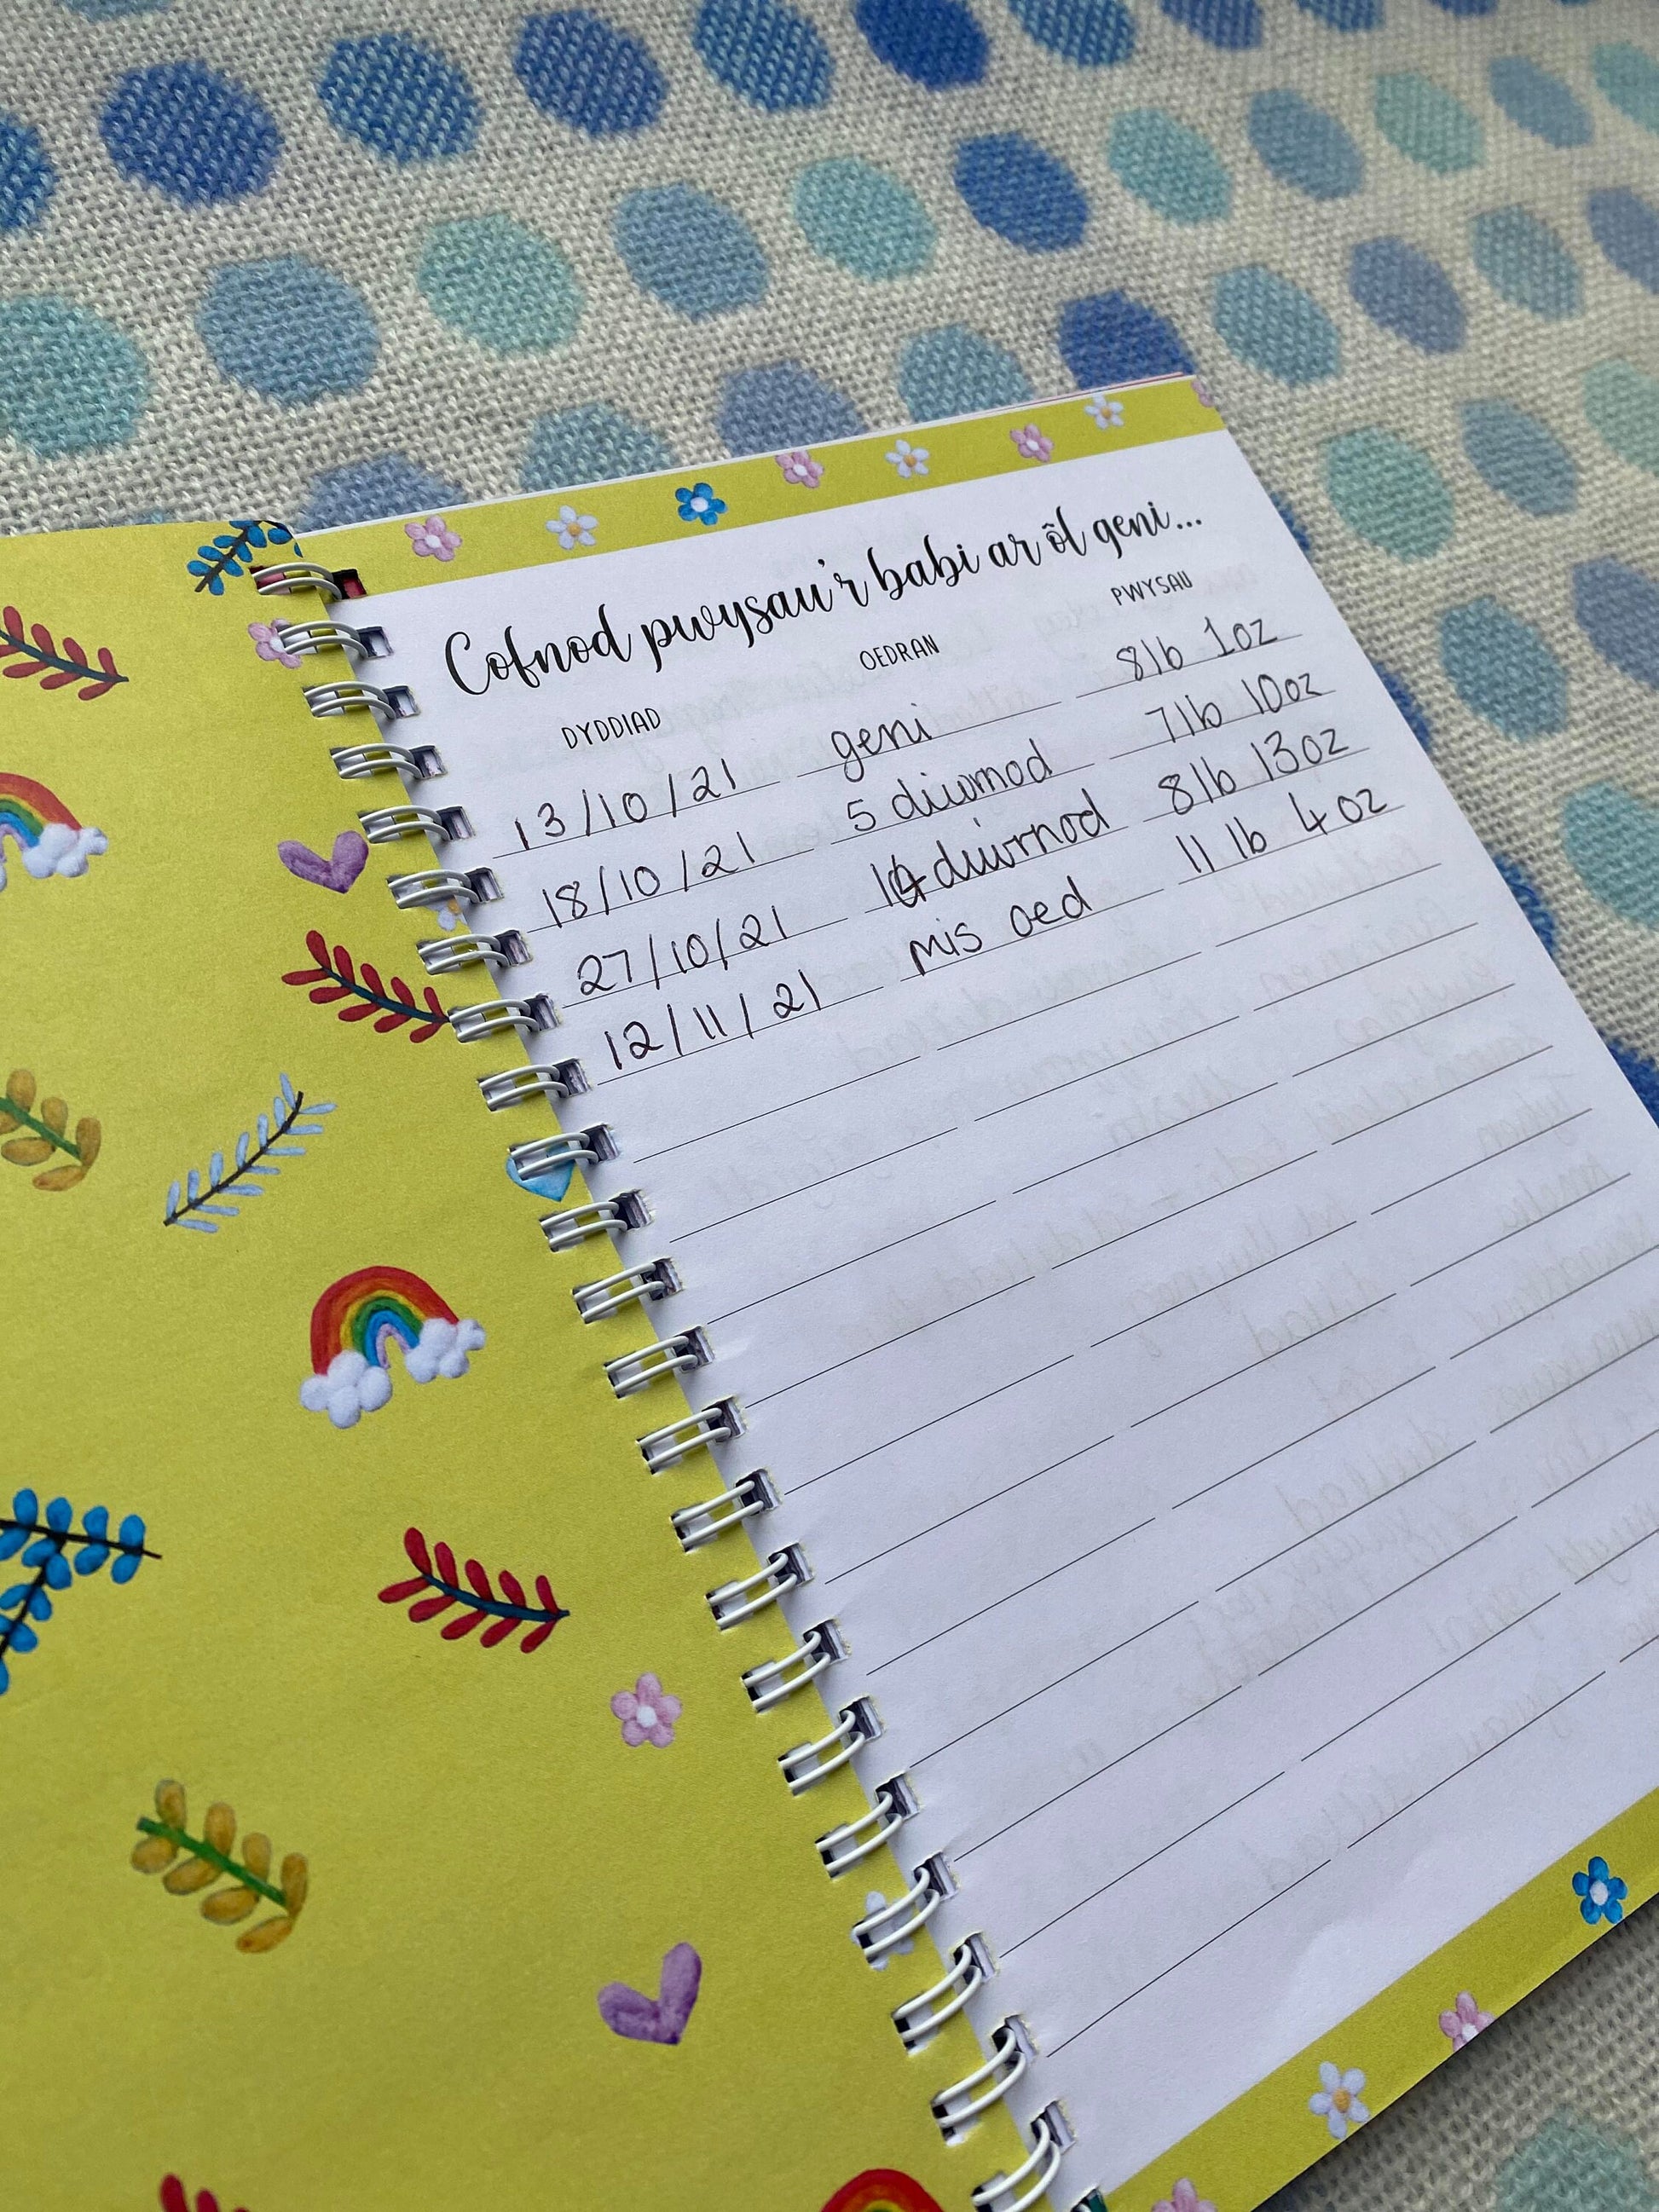 Cofnod pwysau'r babi ar ôl geni...
DYDDIAD OEDRAN PWYSAU
13/10/21 geni 8lb 1oz
18/10/21 5 diwrnod 7lb 10oz
27/10/21 14 diwrnod 8lb 13oz
12/11/21 mis oed 11lb 4oz